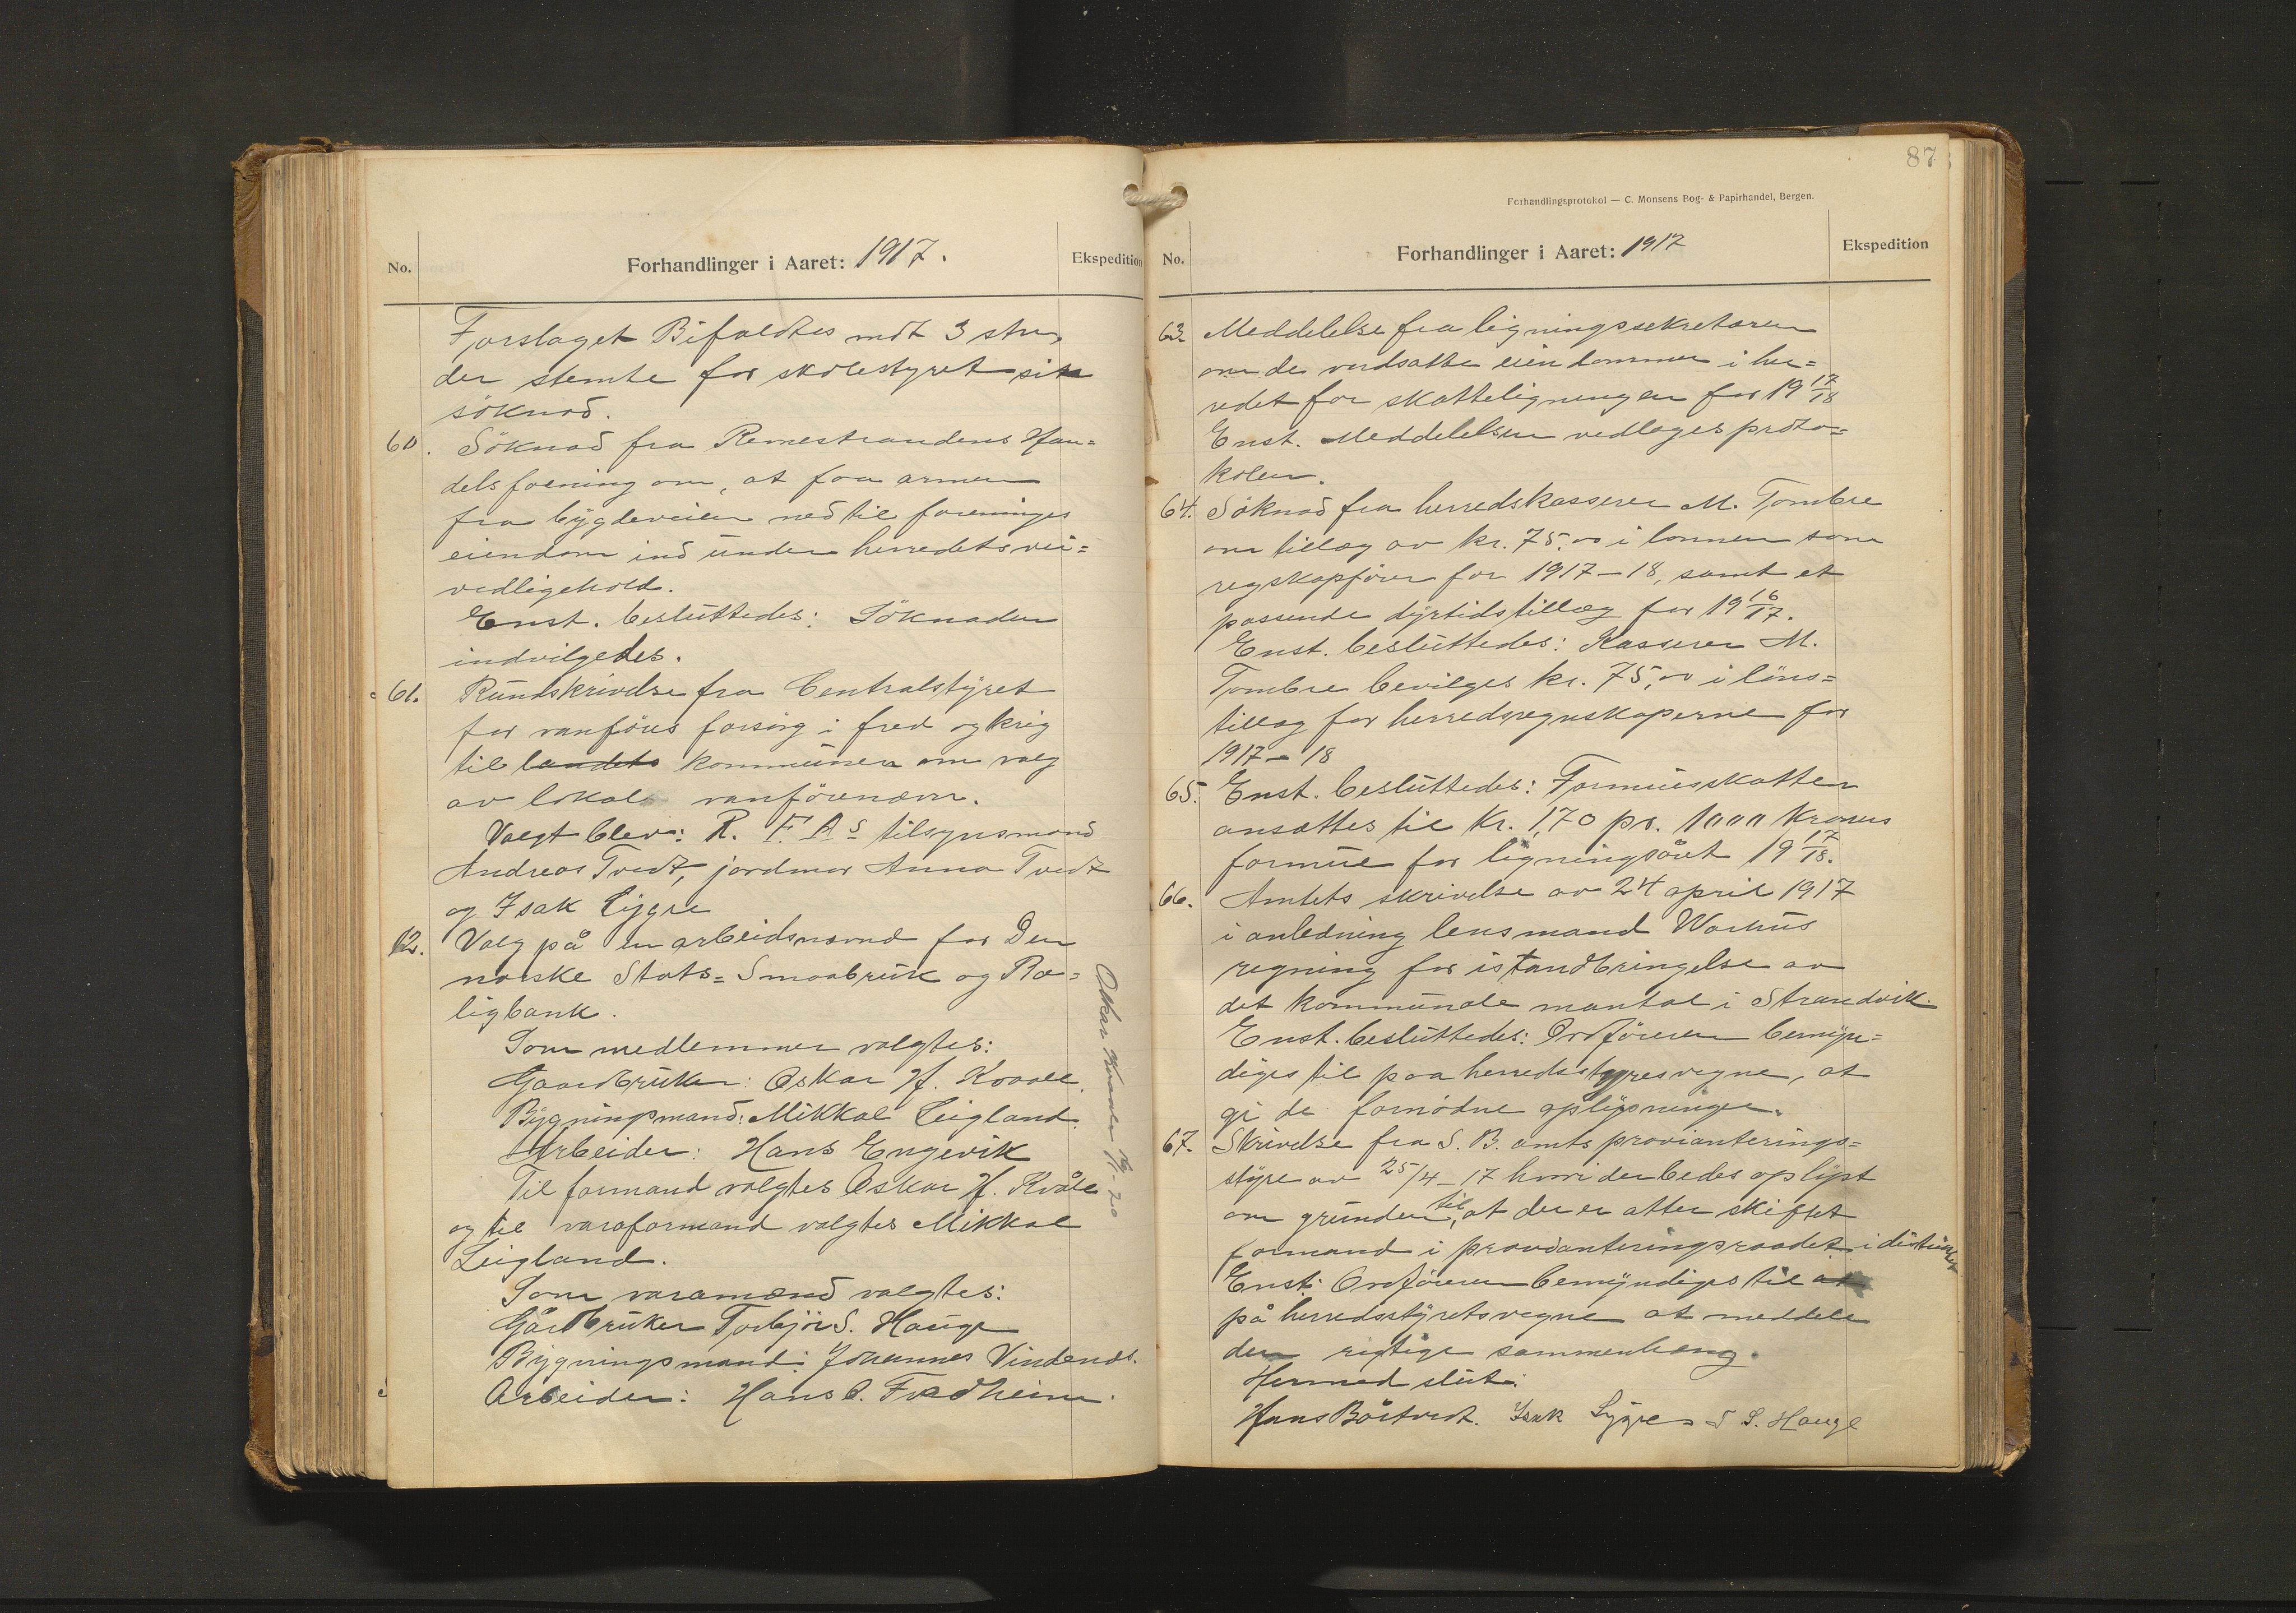 No.
Forhandlinger i Aaret: 1917.
Ekspedition
Forslaget Bifaldtes mot 3 stm.
der stemte for skolestyret sin
söknad.
60. Söknad fra Remestrandens Han=
delsforening om, at faa armen
fra bygdeveien ned til foreninges
eiendom ind under herredets vei=
vedligehold.
Enst. besluttedes: Söknaden
indvilgedes.
61. Rundskrivelse fra Centralstyret
for vanföres forsörg i fred og krig
til landets kommuner om valg
av lokale vanförenævn.
Valgt blev: R. F. A's tilsynsmand
Andreas Tvedt, jordmor Anna Tvedt
og Isak Lygre
62. Valg på en arbeidsnevnd for Den
norske Stats=Smaabruk og Bo=
ligbank.
Som medlemmer valgtes:
Gaardbruker: Oskar H. Kvaale.
Bygningsmand: Mikkal Leigland.
Arbeider: Hans Engevik
Til formand valgtes Oskar H. Kvåle
og til varaformand valgtes Mikkal
Leigland.
Som varamænd valgtes:
Gårdbruker Torbjör S. Hauge
Bygningsmand: Johannes Vindenes.
Arbeider: Hans O. Fredheim.
Oskar Kvaale
87
Forhandlingsprotokol — C. Monsens Bog- & Papirhandel, Bergen.
No.
Forhandlinger i Aaret: 1917
Ekspedition
63. Meddelelse fra ligningssekretæren
om de verdsatte eiendommer i her=
redet for skatteligningen for 19 17/18
Enst. Meddelelsen vedlages proto=
kolen.
64. Söknad fra herredskasserer M. Tombre
om tillæg av kr. 75.00 i lönnen som
regskapförer for 1917–18, samt et
passende dyrtidstillæg for 19 16/17.
Enst. besluttedes: Kasserer M.
Tombre bevilges kr. 75,00 i löns=
tillæg for herredsregnskaperne for
1917–18
65. Enst. besluttedes: Formuesskatten
ansættes til kr. 1,70 pr. 1000 kroners
formue for ligningsåret 19 17/18.
66. Amtets skrivelse av 24 april 1917
i anledning lensmand Warhus
regning for istandbringelse av
det kommunale mantal i Strandvik.
Enst. besluttedes: Ordföreren bemyn=
diges til paa herredsstyres vegne, at
gi de fornödne oplysninger.
67. Skrivelse fra S. B. amts provianterings=
styre av 25/4–17 hvori der bedes oplyst
om grunden til, at der er atter skiftet
formand i provianteringsraadet i distriktet
Enst: Ordföreren bemyndiges til at
på herredsstyrets vegne at meddele
den rigtige sammenheng.
Hermed slut.
Hans Böstvedt. Isak Lygre T S. Hauge